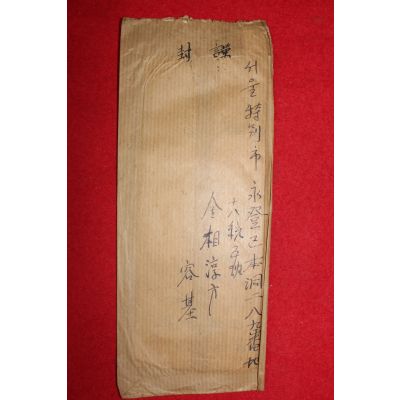 서울特別市 永登區本洞一八九番地
十八統五班
金相淳方
容基
謹封